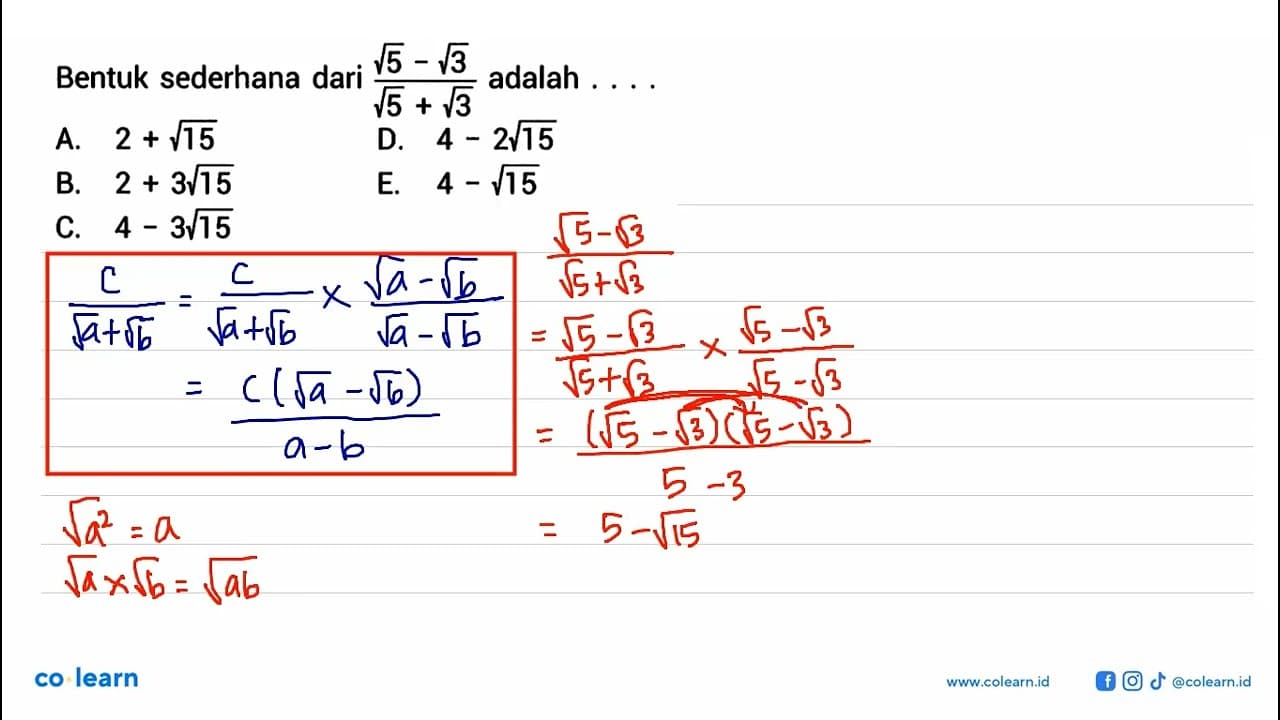 Bentuk sederhana dari (√5 − √3)/(√5 + √3) adalah . . . .
A. 2 + √15 D. 4 − 2√15
B. 2 + 3√15 E. 4 − √15
C. 4 − 3√15
c/(√a+√b) = c/(√a+√b) × (√a−√b)/(√a−√b)
= c(√a−√b)/(a−b)
√a² = a
√a × √b = √ab
(√5−√3)/(√5+√3)
= (√5−√3)/(√5+√3) × (√5−√3)/(√5−√3)
= (√5−√3)(√5−√3)/(5−3)
= 5−√15
co learn
www.colearn.id
@colearn.id